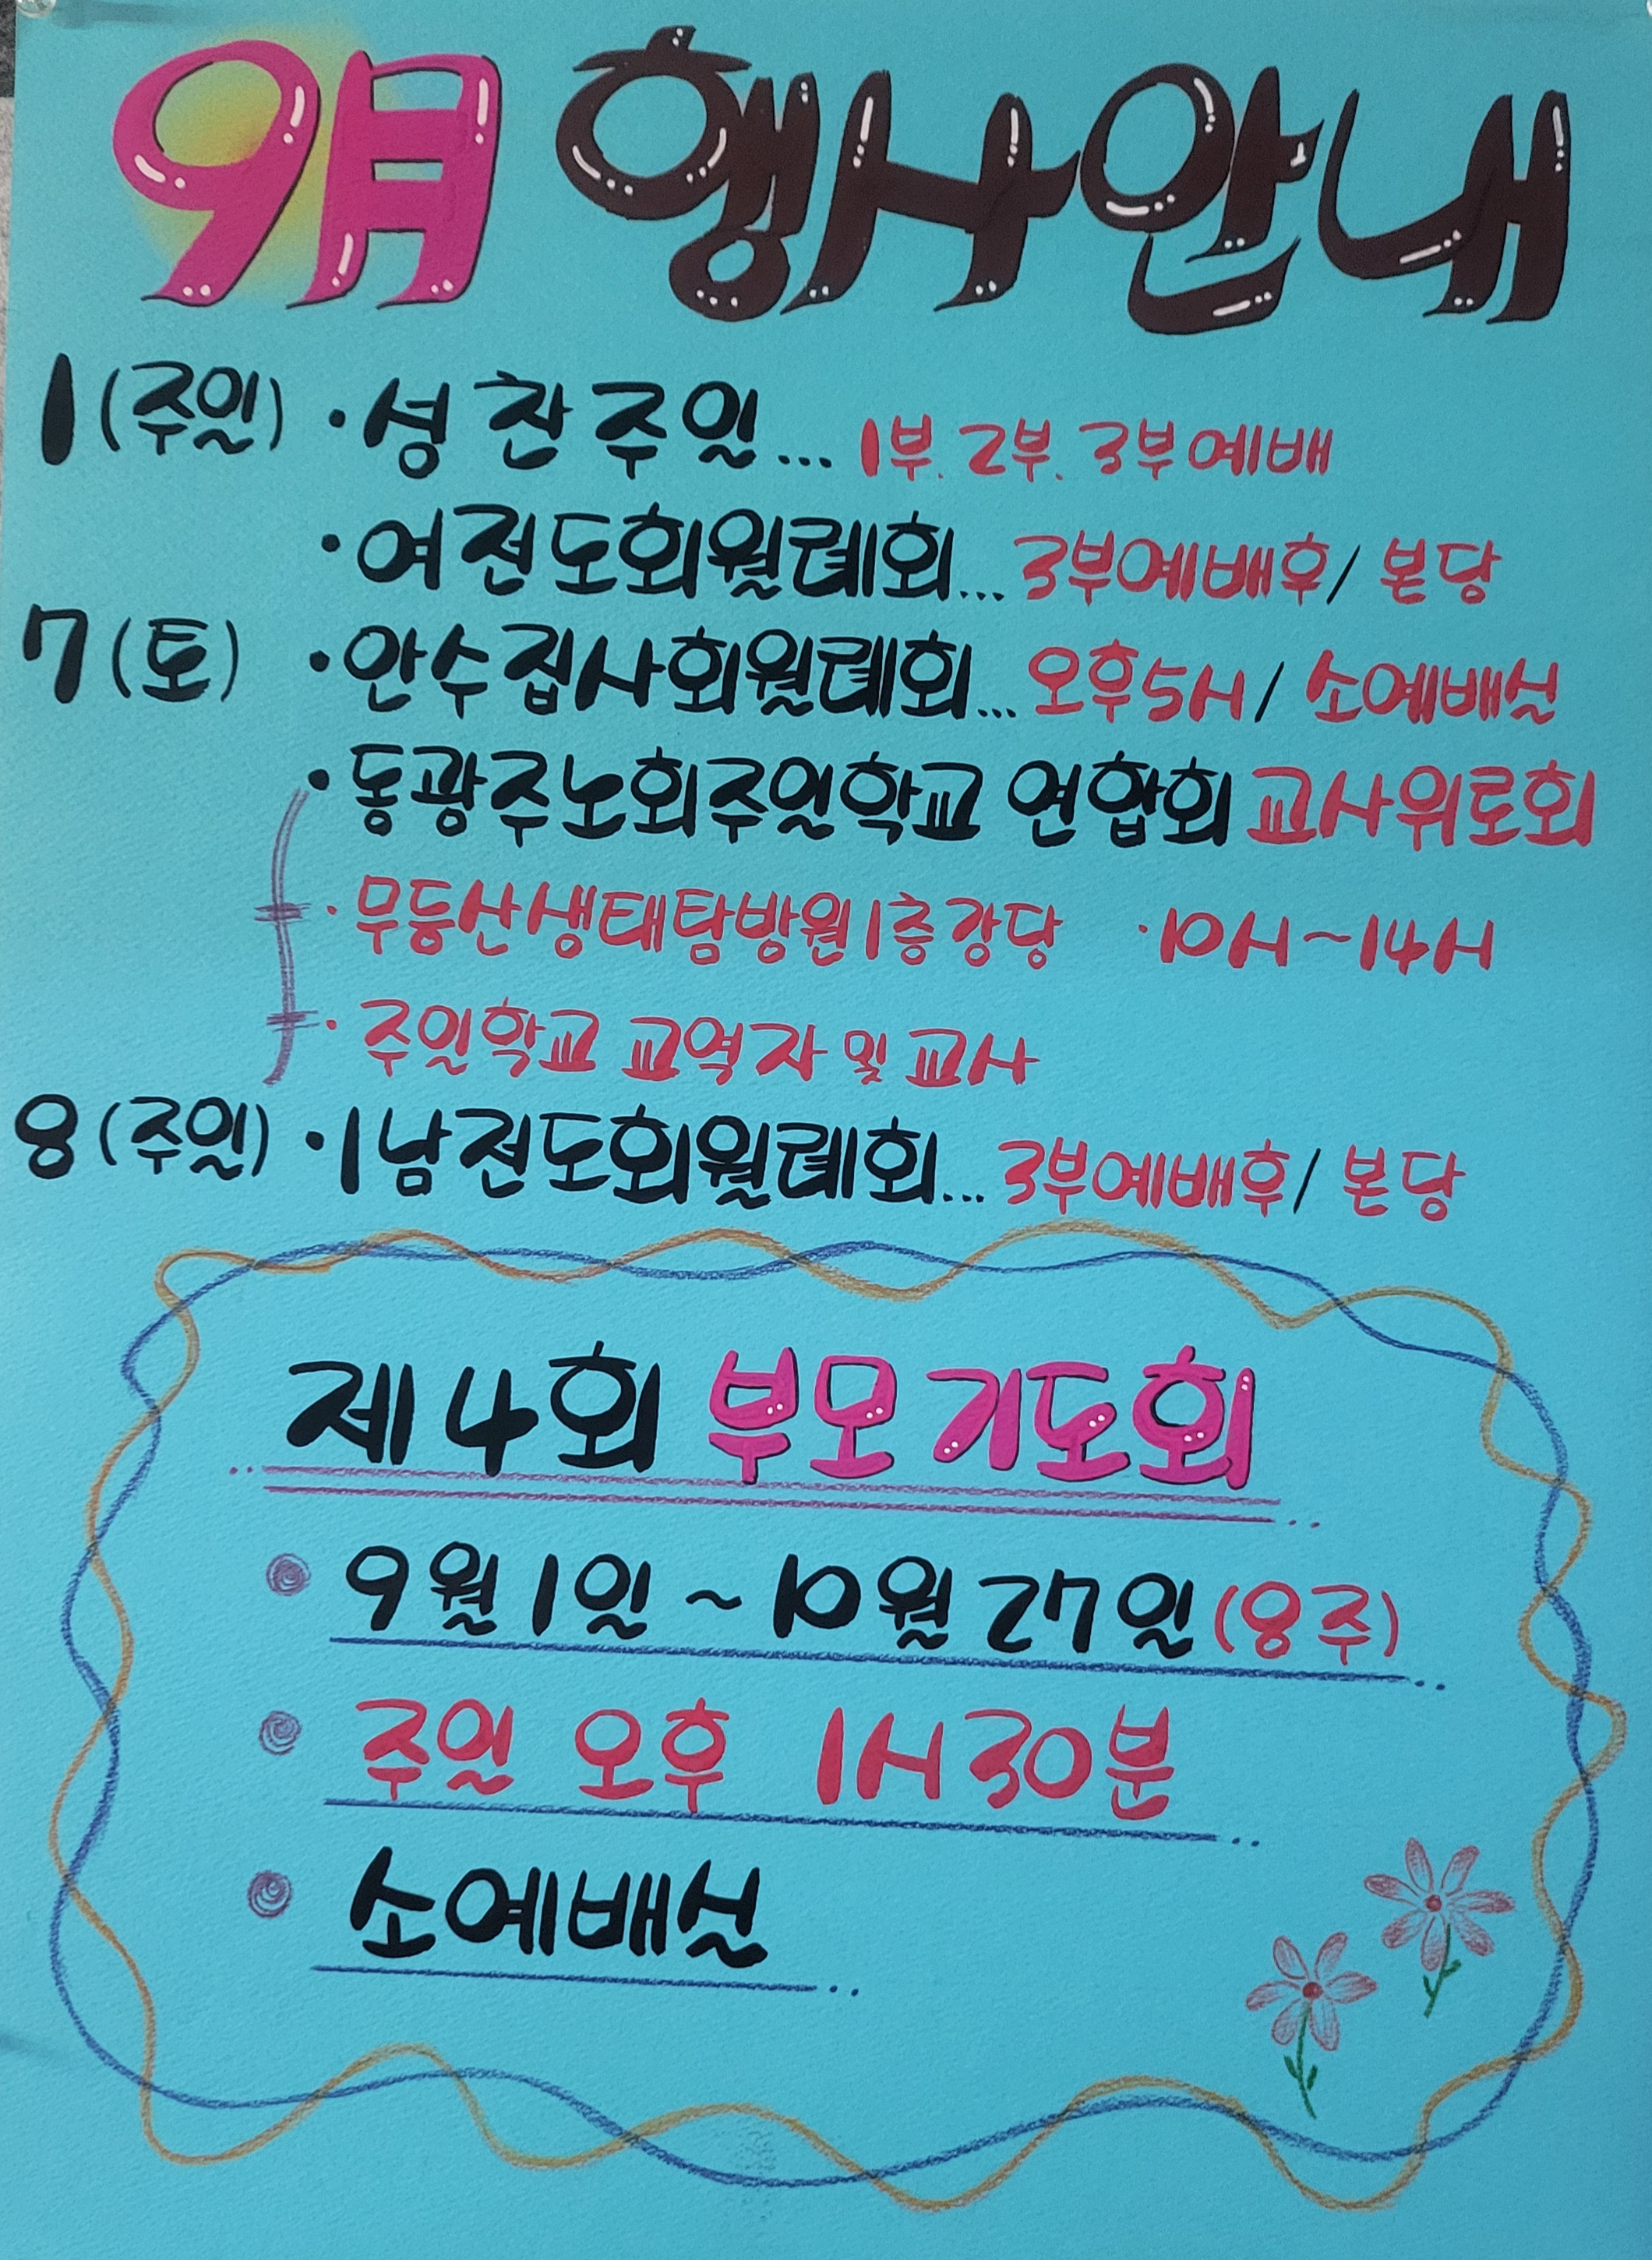 9月 행사안내
1(주일) ·성찬주일... 1부. 2부. 3부예배
·여전도회월례회... 3부예배후/ 본당
7(토) ·안수집사회월례회... 오후5시/ 소예배실
·동광주노회주일학교 연합회 교사위로회
·무등산생태탐방원1층강당 ·10시~14시
·주일학교 교역자 및 교사
8(주일) ·1남전도회월례회... 3부예배후/ 본당
제4회 부모기도회
9월1일~10월27일(8주)
주일 오후 1시30분
소예배실